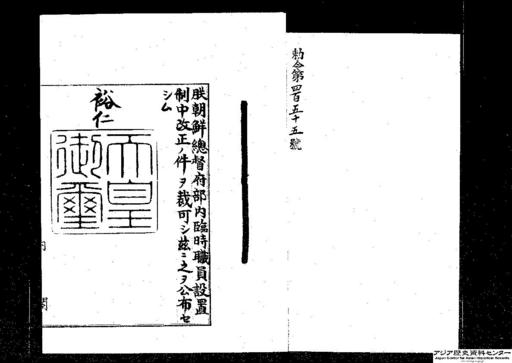 勅令第四百五十五號
朕朝鮮總督府部内臨時職員設置
制中改正ノ件ヲ裁可シ茲ニ之ヲ公布セ
シム
裕仁
天皇
御璽
アジア歴史資料センター
Japan Center for Asian Historical Records